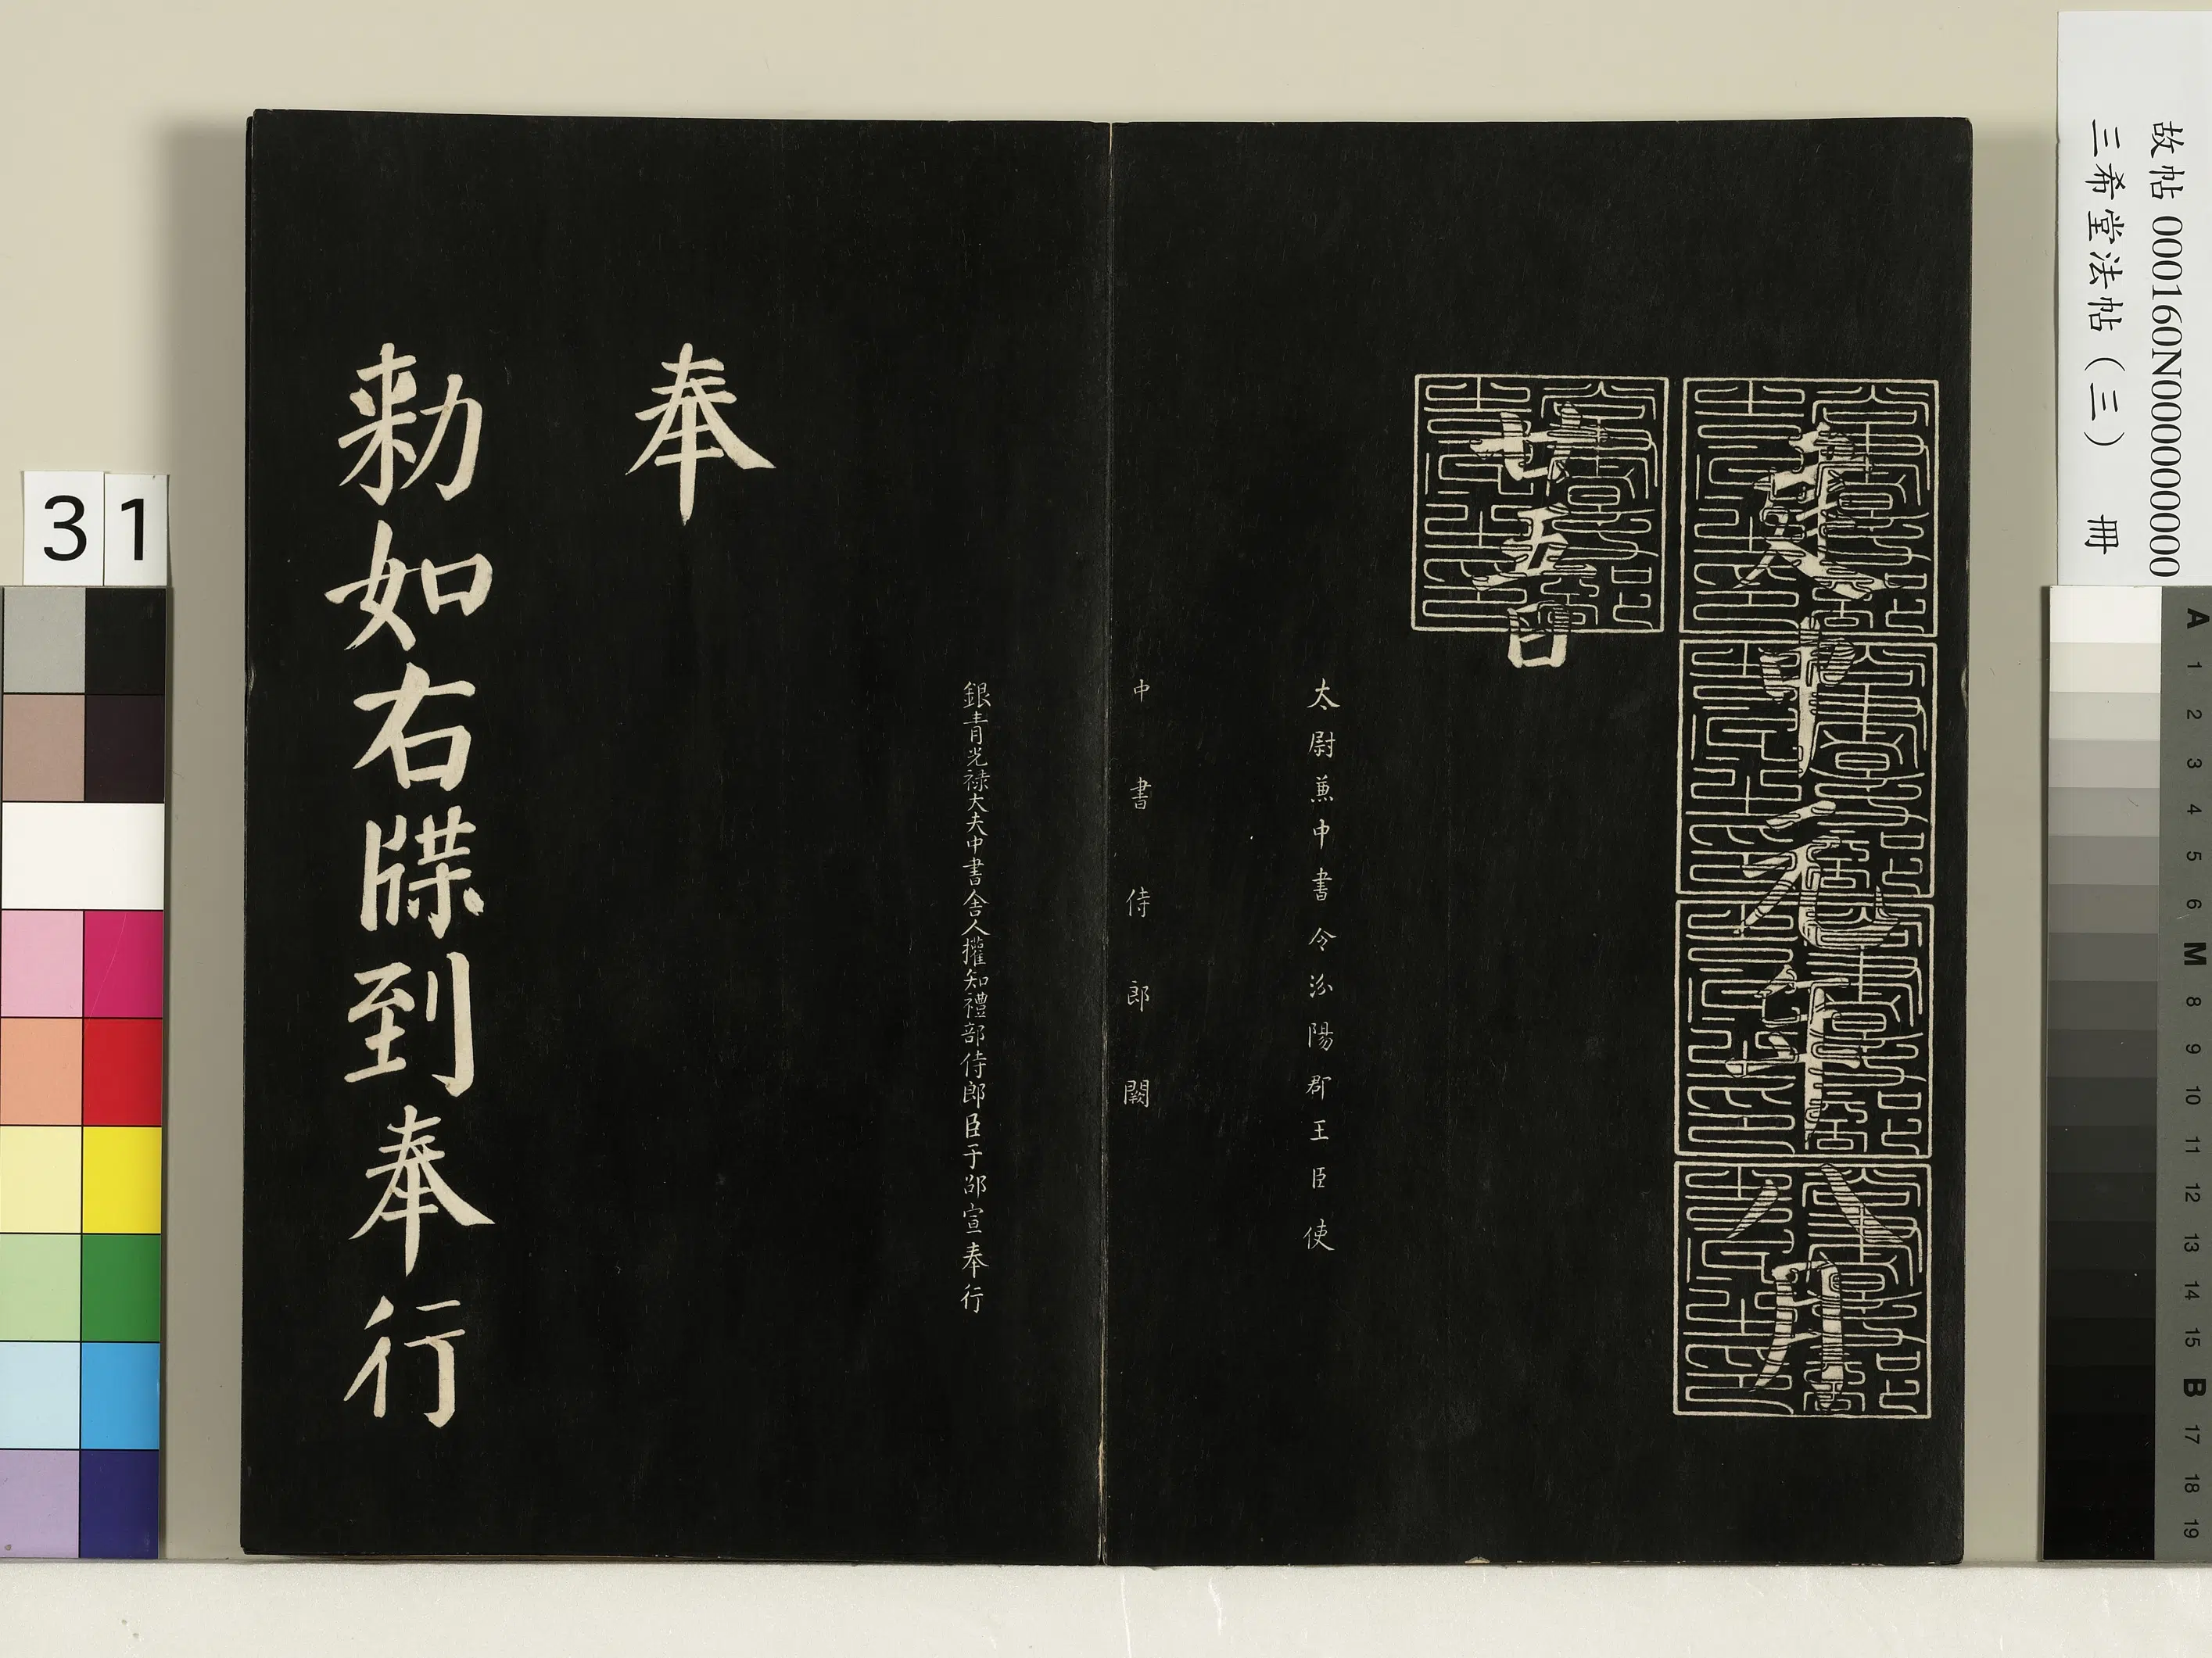 故帖 000160N000000000
三希堂法帖（三） 冊
建中元年八月
廿五日
太尉兼中書令汾陽郡王臣使
中書侍郎闕
銀青光祿大夫中書舍人權知禮部侍郎臣于邵宣奉行
奉
勑如右牒到奉行
31
A 1 2 3 4 5 6 M 8 9 10 11 12 13 14 15 B 17 18 19